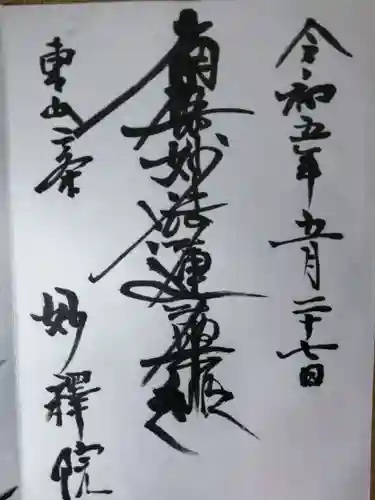 令和五年五月二十七日
南無妙法蓮華経
東山二条
妙釋院